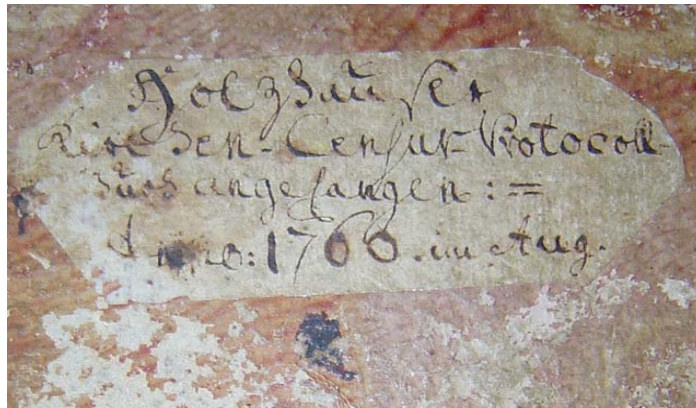 Holzhauser
Kirchen-Censur-Protocoll-
buch angefangen:=
Anno: 1760. im Aug.